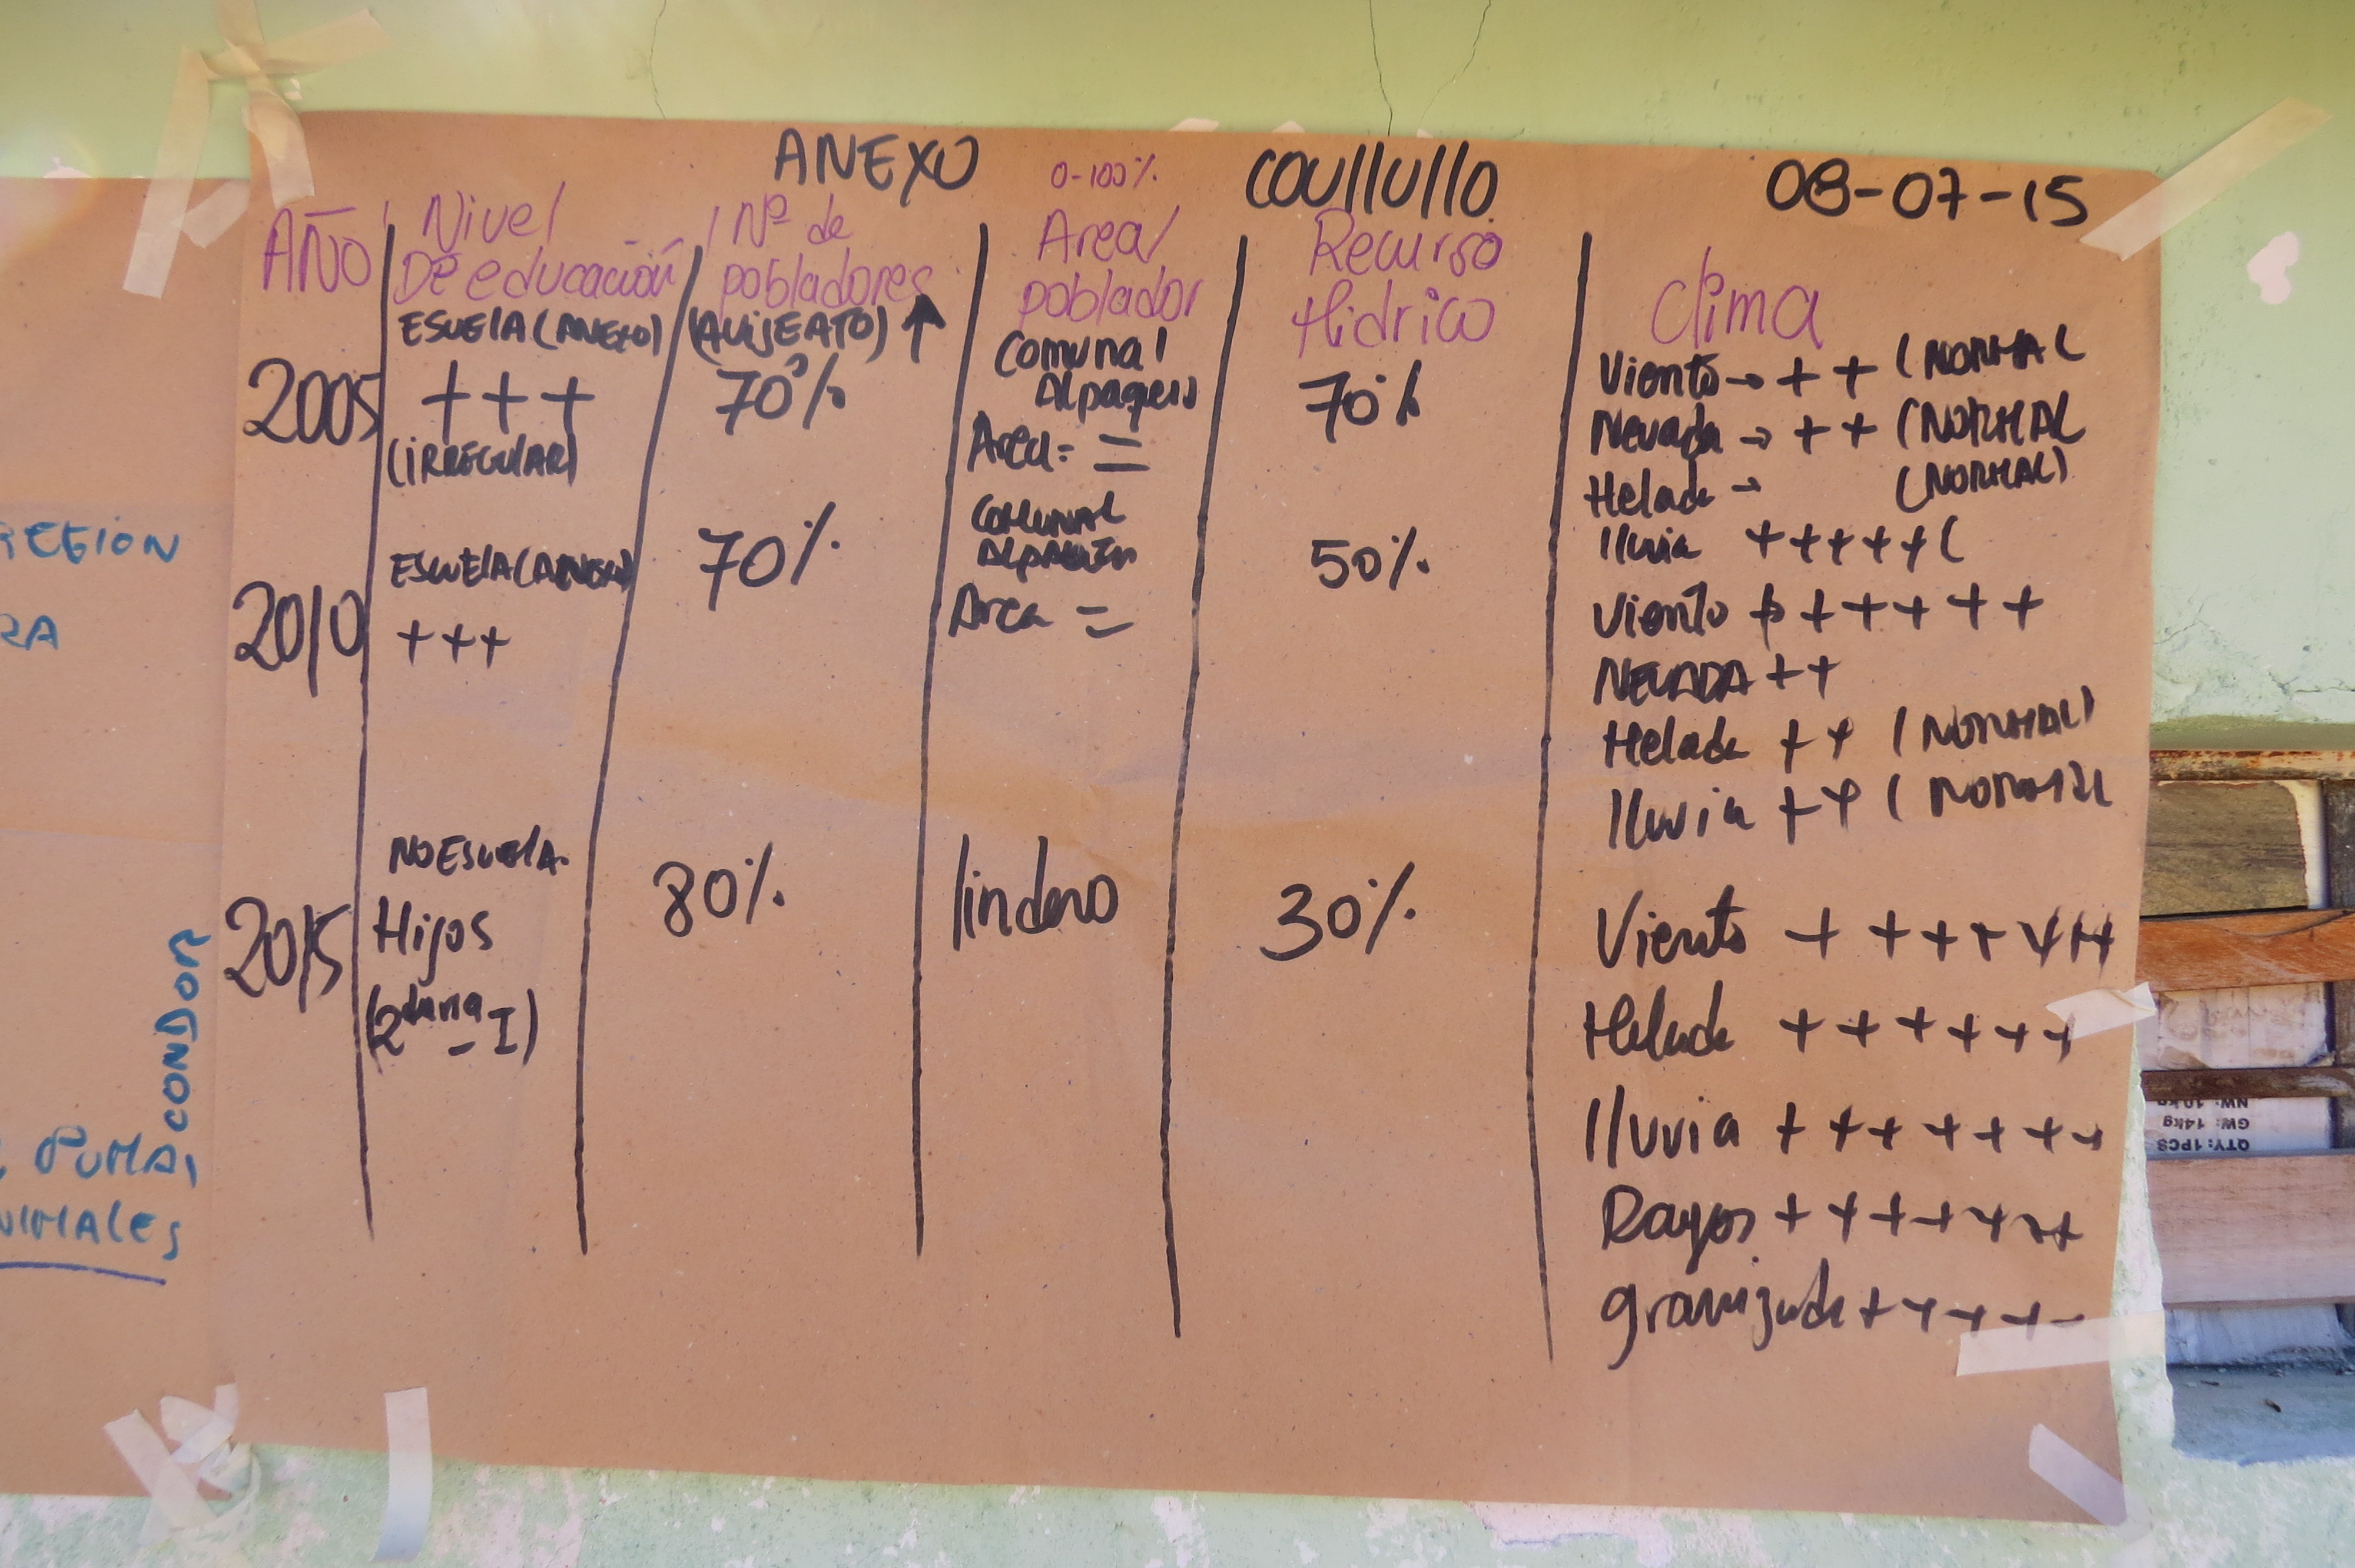 ANEXO 0-100% COULLULLO 08-07-15
AÑO
Nivel
De educación
Nº de
pobladores
Area/
poblador
Recurso
Hidrico
Clima
2005
ESCUELA (ANEXO)
+++
(IRREGULAR)
70%
Comunal
Alpaquero
Area: =
70%
Viento → ++ (NORMAL
Nevada → ++ (NORMAL
Helada → (NORMAL)
lluvia +++++ (
2010
ESCUELA (ANEXO)
+++
70%
COMUNAL
Area =
50%
Viento ++++++
NEVADA ++
Helada ++ (NORMAL)
lluvia ++ (NORMAL
2015
NO ESCUELA
Hijos
(2daria - I)
80%
lindero
30%
Viento +++++++
Helada ++++++
lluvia +++++++
Rayos +++++++
granizada +++++
REGION
RA
CONDOR
PUMA,
NIMALES
QTY: 1PCS
GW: 14kg
NW: 10kg